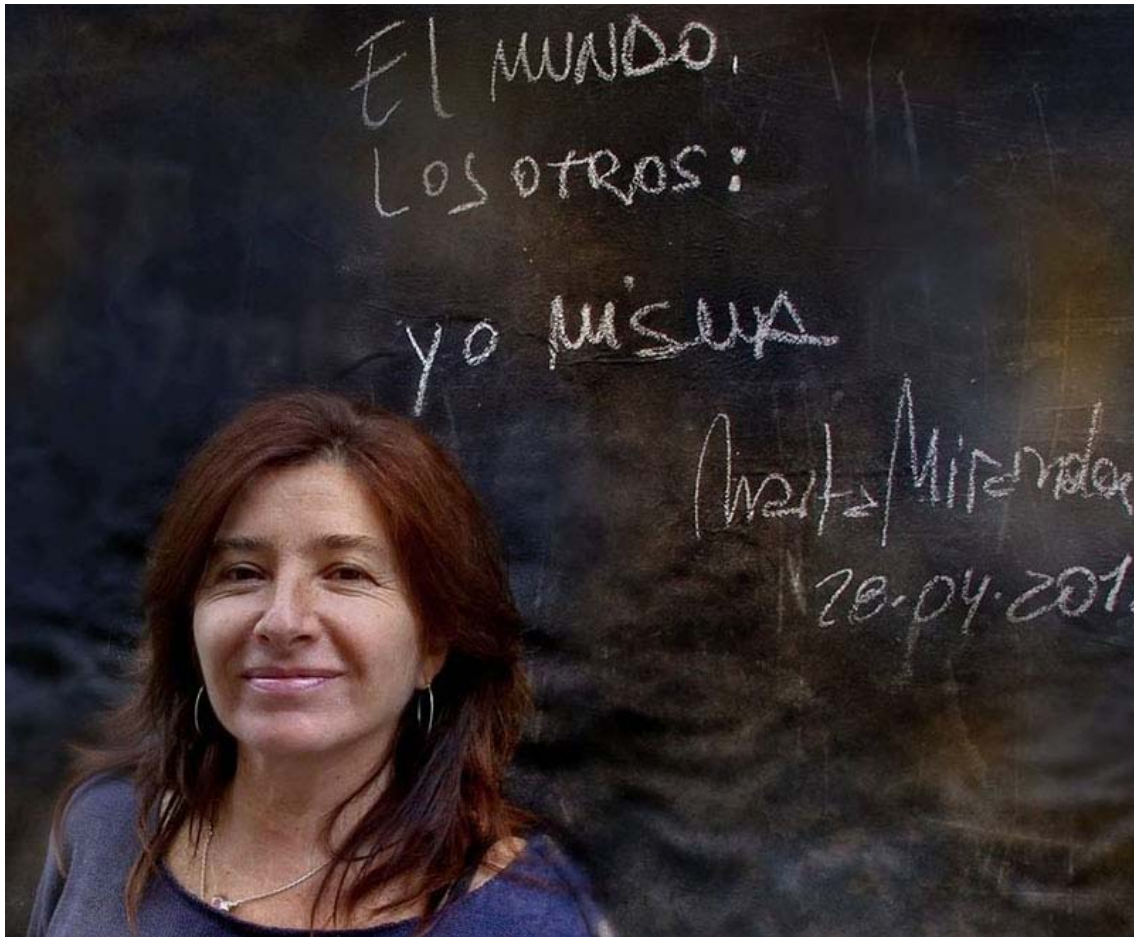 El MUNDO,
LOS OTROS:
yo MISMA
Marta Miranda
28.04.201